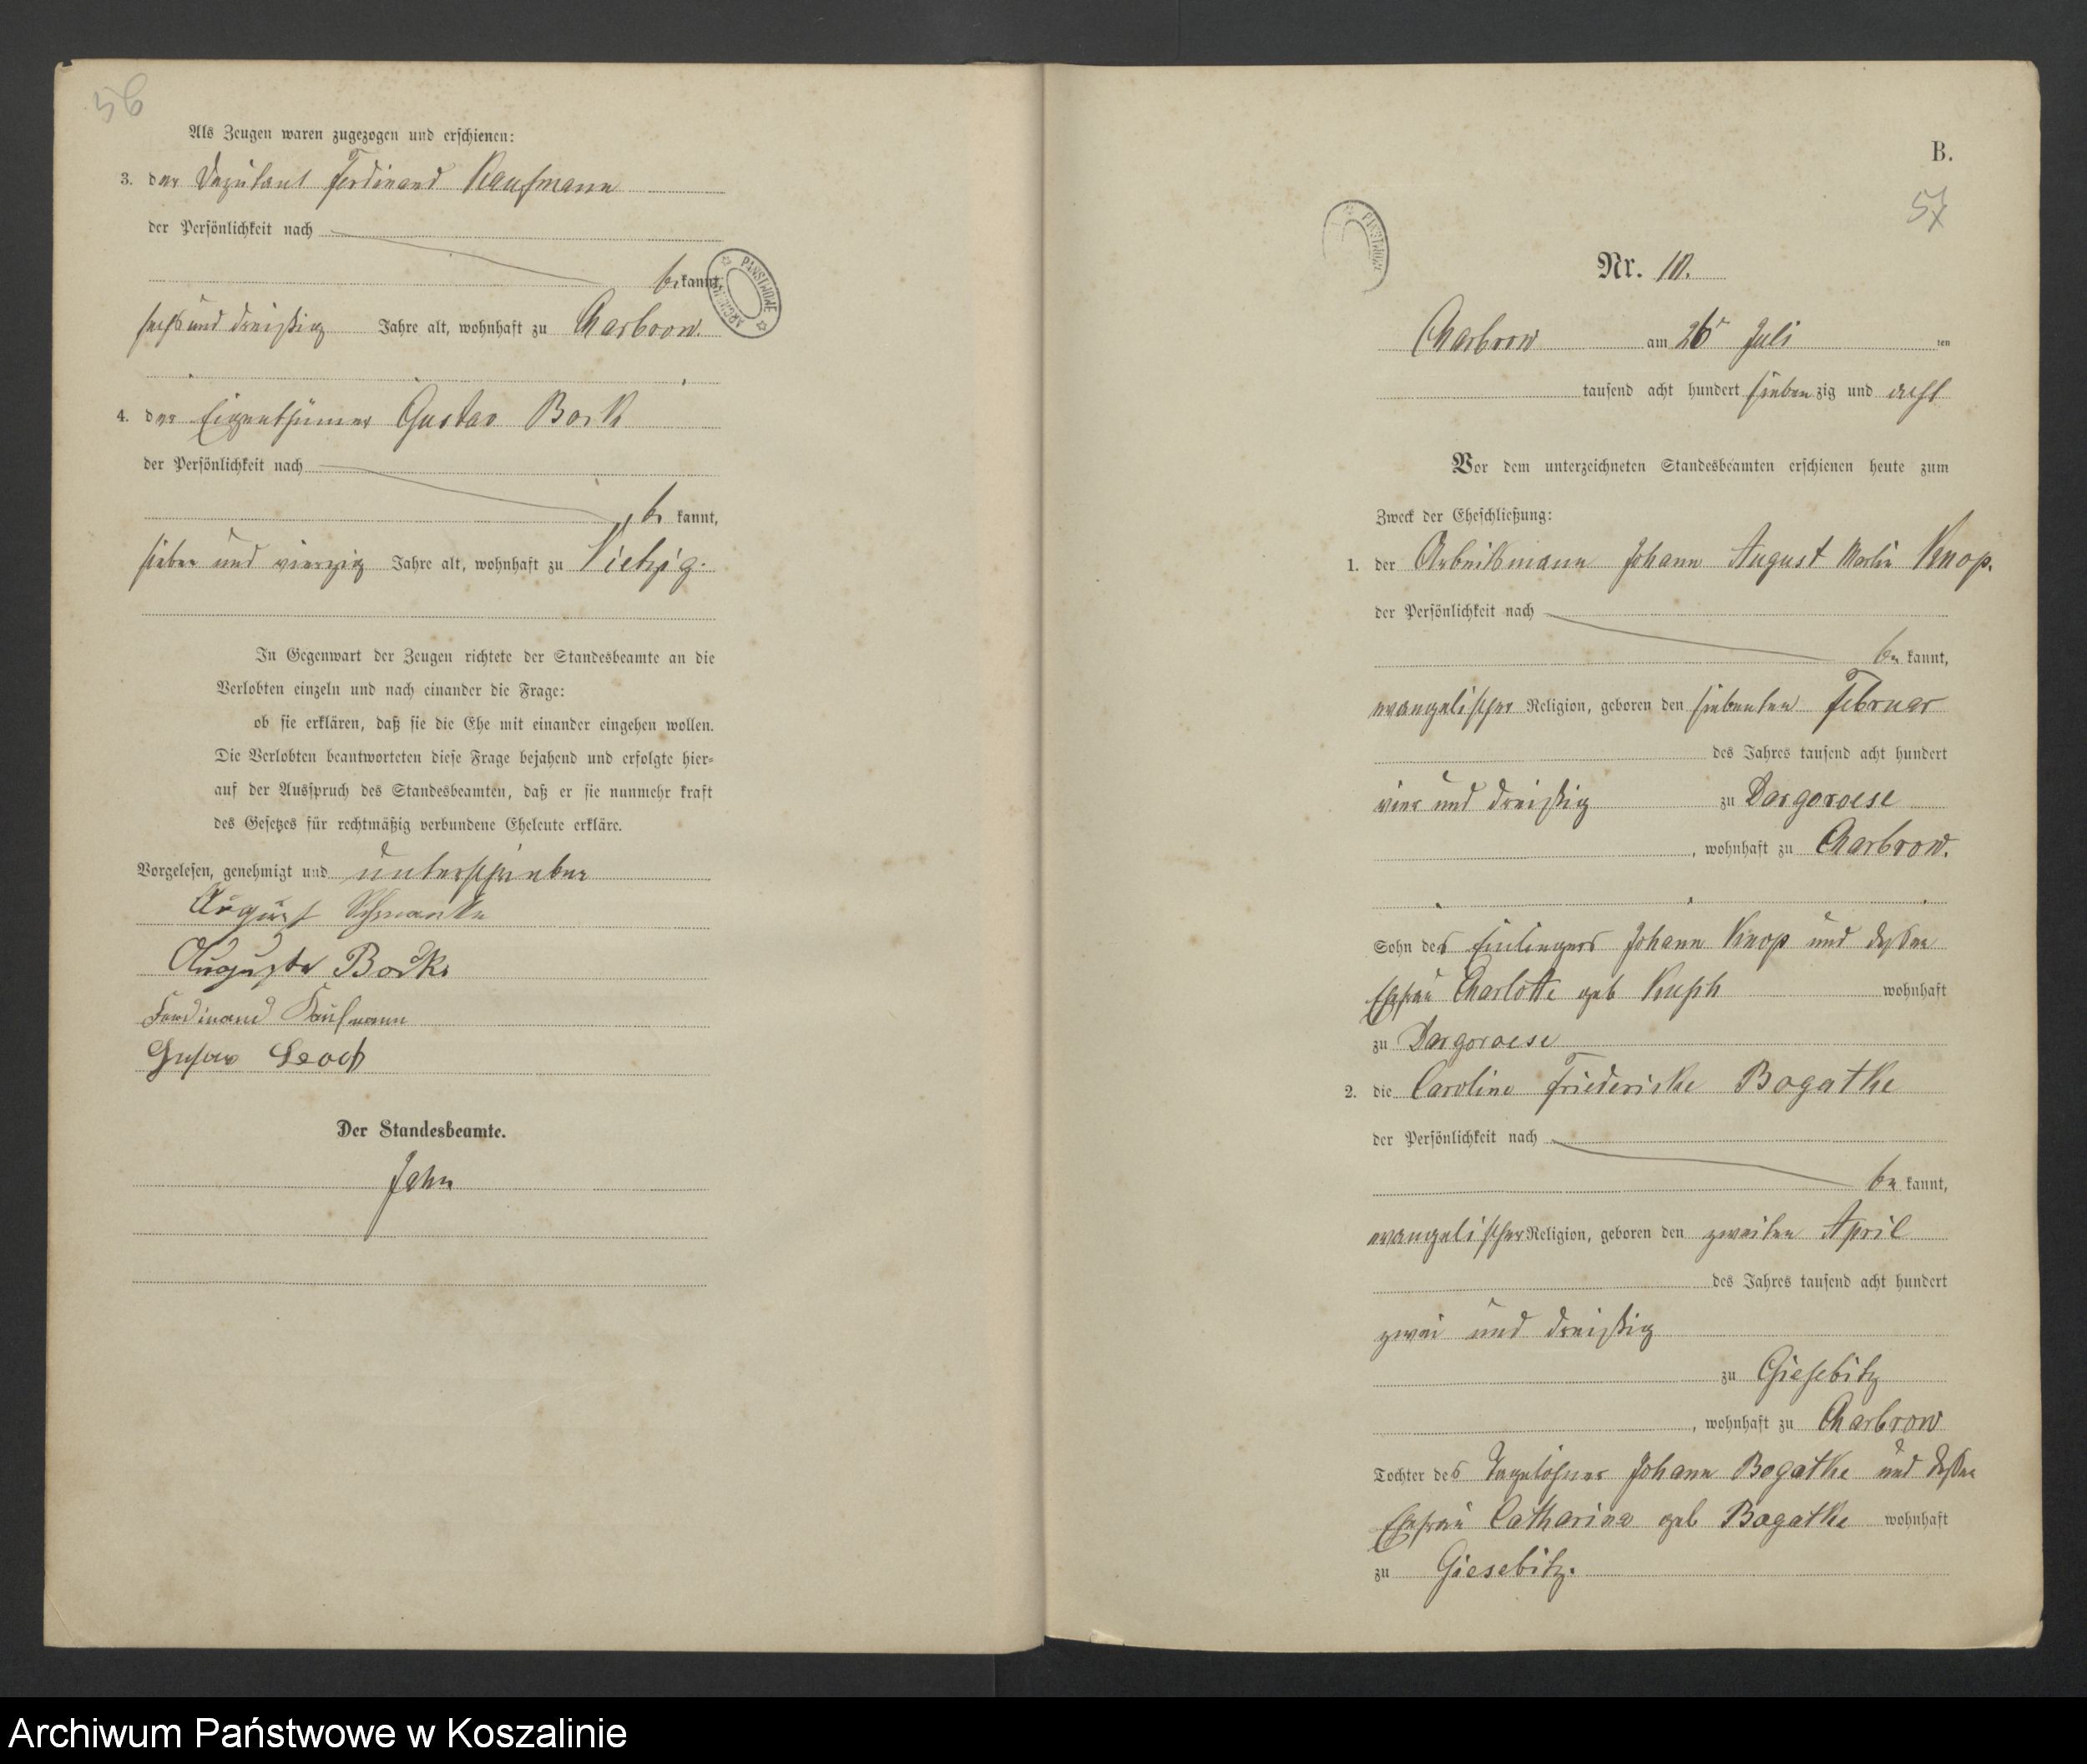 56
Als Zeugen waren zugezogen und erschienen:
3. der Deputant Ferdinand Kaufmann
der Persönlichkeit nach
bekannt,
sechs und dreißig Jahre alt, wohnhaft zu Charbrow.
4. der Eigenthümer Gustav Bork
der Persönlichkeit nach
be kannt,
sieben und vierzig Jahre alt, wohnhaft zu Vietzig.
In Gegenwart der Zeugen richtete der Standesbeamte an die
Verlobten einzeln und nach einander die Frage:
ob sie erklären, daß sie die Ehe mit einander eingehen wollen.
Die Verlobten beantworteten diese Frage bejahend und erfolgte hier-
auf der Ausspruch des Standesbeamten, daß er sie nunmehr kraft
des Gesetzes für rechtmäßig verbundene Eheleute erkläre.
Vorgelesen, genehmigt und unterschrieben
August
Auguste Bork
Ferdinand Kaufmann
Gustav
Der Standesbeamte.
Jahn
B.
57
PAŃSTWOWE
Nr. 10.
Charbrow am 26 Juli ten
tausend acht hundert siebenzig und acht
Vor dem unterzeichneten Standesbeamten erschienen heute zum
Zweck der Eheschließung:
1. der Arbeitsmann Johann August Martin Knop.
der Persönlichkeit nach
be kannt,
evangelischer Religion, geboren den siebenten Februar
des Jahres tausend acht hundert
vier und dreißig zu Dargoroese
, wohnhaft zu Charbrow.
Sohn des Einliegers Johann Knop und dessen
Ehefrau Charlotte geb wohnhaft
zu Dargoroese
2. die Caroline Friederike Bogatke
der Persönlichkeit nach
be kannt,
evangelischer Religion, geboren den zweiten April
des Jahres tausend acht hundert
zwei und dreißig
zu Giesebitz
, wohnhaft zu Charbrow
Tochter des Tagelöhner Johann Bogatke und dessen
Ehefrau Catharina geb Bogatke wohnhaft
zu Giesebitz.
Archiwum Państwowe w Koszalinie